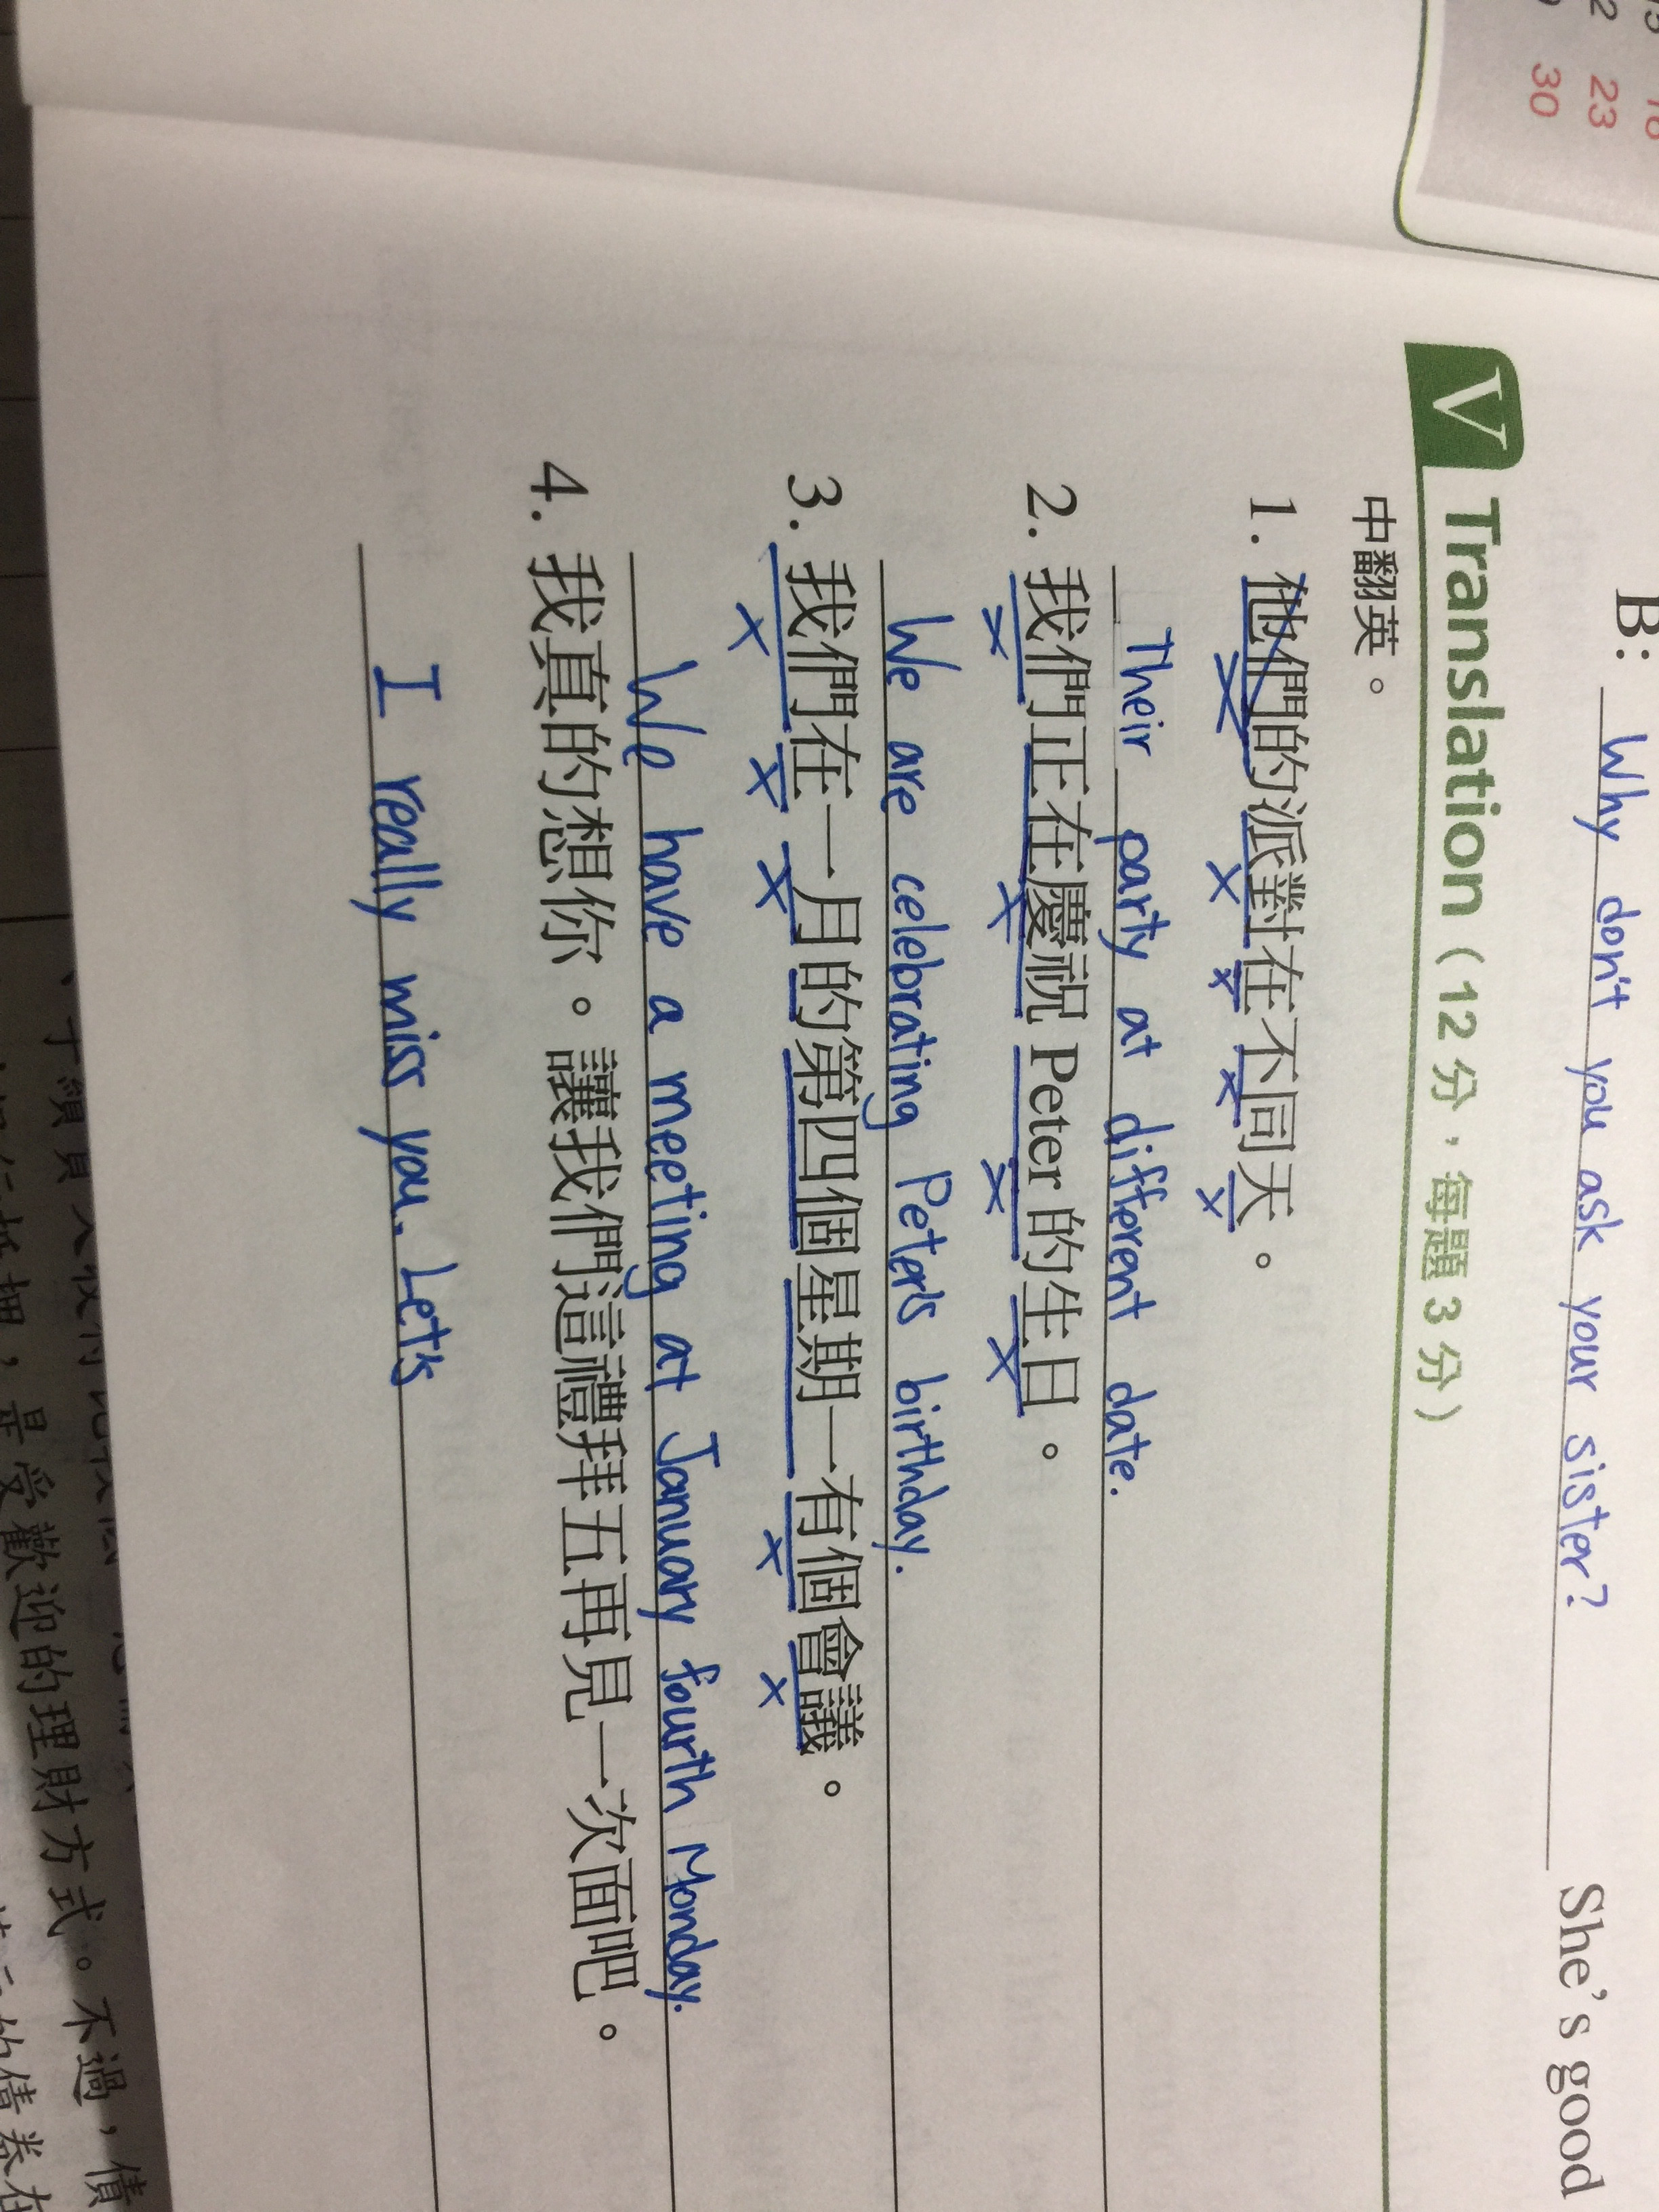 23
30
B: Why don't you ask your sister? She's good
V Translation（12 分，每題 3 分）
中翻英。
1. 他們的派對在不同天。
Their party at different date.
2. 我們正在慶祝 Peter 的生日。
We are celebrating Peter's birthday.
3. 我們在一月的第四個星期一有個會議。
We have a meeting at January fourth Monday.
4. 我真的想你。讓我們這禮拜五再見一次面吧。
I really miss you. Let's
是受歡迎的理財方式。不過，債